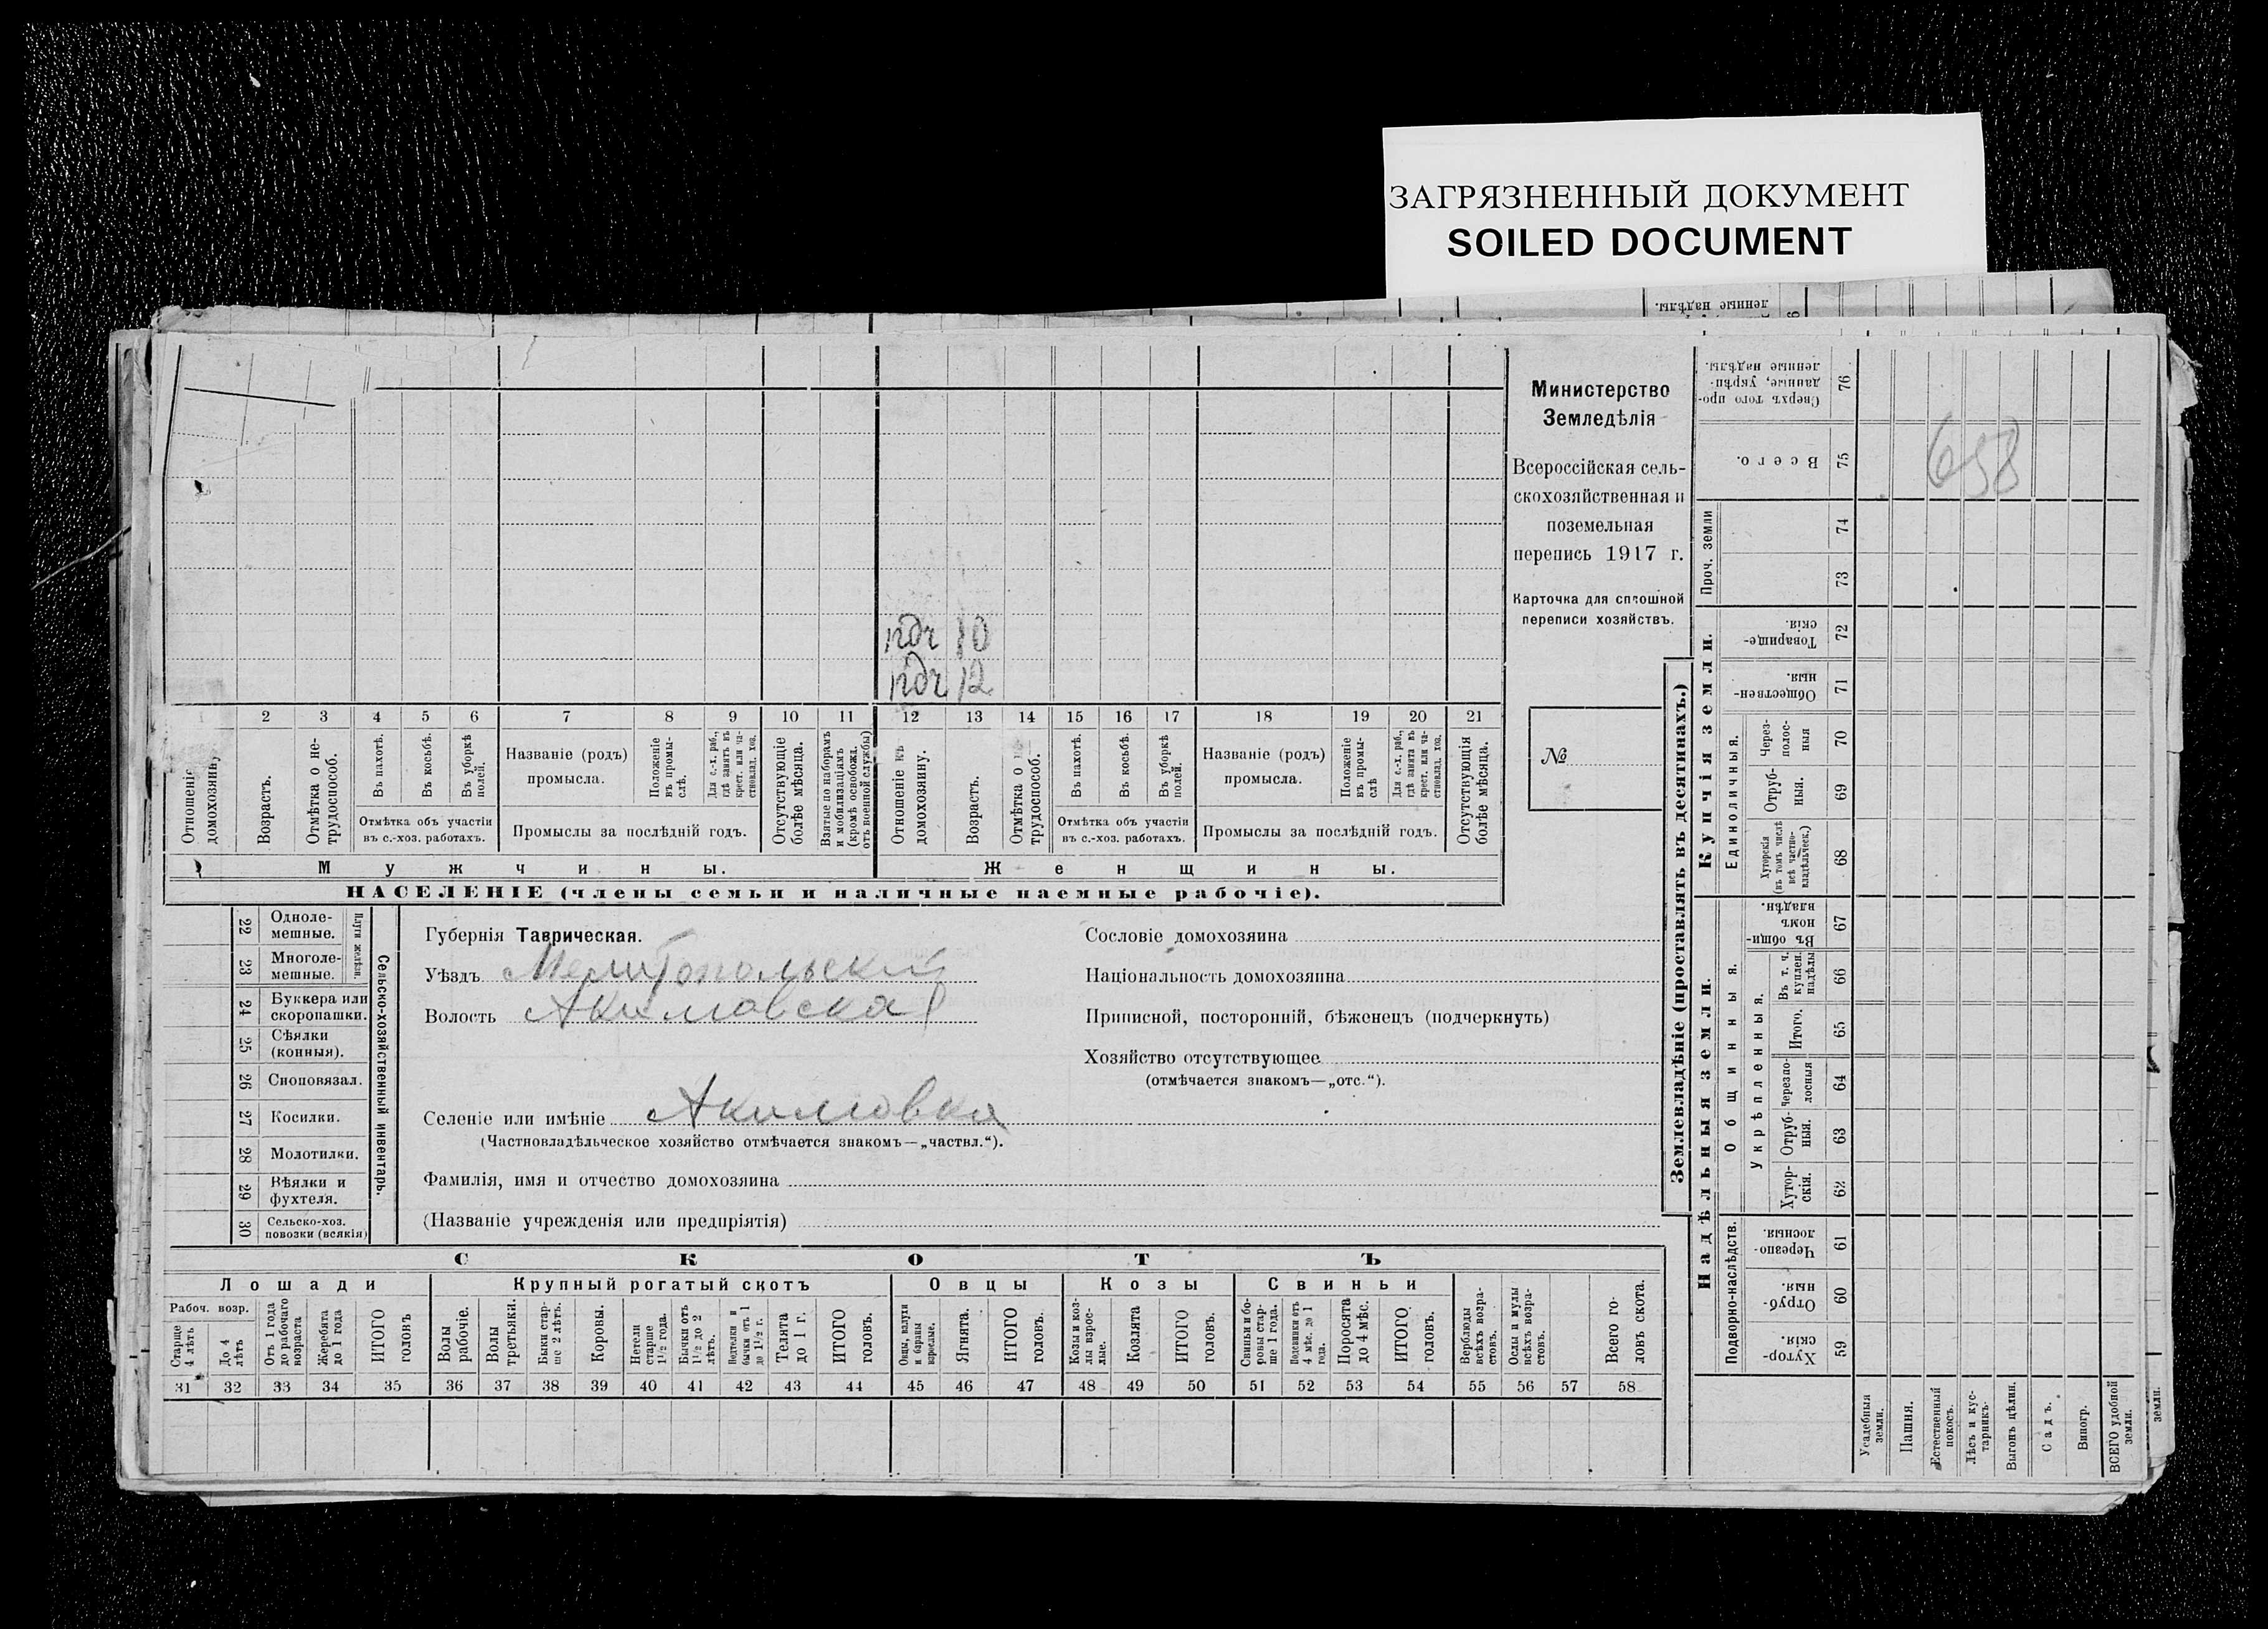 ЗАГРЯЗНЕННЫЙ ДОКУМЕНТ
SOILED DOCUMENT
ленные надѣлы.
Министерство
Земледѣлія
Всероссійская сель-
скохозяйственная и
поземельная
перепись 1917 г.
Карточка для сплошной
переписи хозяйствъ.
№
10
12
1 2 3 4 5 6 7 8 9 10 11 12 13 14 15 16 17 18 19 20 21
Отношеніе
домохозяину
Возрастъ.
Отмѣтка о не-
трудоспособ.
Въ пахотѣ.
Въ косьбѣ.
Въ уборкѣ
полей.
Отмѣтка объ участіи
въ с.-хоз. работахъ.
Названіе (родъ)
промысла.
Положеніе
въ промы-
слѣ.
Для с.-х. раб.,
гдѣ занятъ въ
крест. или ча-
стновлад. хоз.
Промыслы за послѣдній годъ.
Отсутствующіе
болѣе мѣсяца.
Взятые по наборамъ
и мобилизаціямъ
(кромѣ освобожд.
отъ военной службы)
Отношеніе къ
домохозяину.
Возрастъ.
Отмѣтка о
трудоспособ.
Въ пахотѣ.
Въ косьбѣ.
Въ уборкѣ
полей.
Отмѣтка объ участіи
въ с.-хоз. работахъ.
Названіе (родъ)
промысла.
Положеніе
въ промы-
слѣ
Для с.-х. раб.,
гдѣ занята въ
крест. или ча-
стновлад. хоз.
Промыслы за послѣдній годъ.
Отсутствующія
болѣе мѣсяца.
Мужчины.
Женщины.
НАСЕЛЕНІЕ (члены семьи и наличные наемные рабочіе).
22 Одноле-
мешные.
23 Многоле-
мешные.
Плуги желѣзн.
24 Буккера или
скоропашки.
25 Сѣялки
(конныя).
26 Сноповязал.
27 Косилки.
28 Молотилки.
29 Вѣялки и
фухтеля.
30 Сельско-хоз.
повозки (всякія)
Сельско-хозяйственный инвентарь.
Губернія Таврическая.
Уѣздъ Мелитопольскій
Волость Акимовская
Селеніе или имѣніе Акимовка
(Частновладѣльческое хозяйство отмѣчается знакомъ—„частвл.“).
Фамилія, имя и отчество домохозяина
(Названіе учрежденія или предпріятія)
Сословіе домохозяина
Національность домохозяина
Приписной, посторонній, бѣженецъ (подчеркнуть)
Хозяйство отсутствующее
(отмѣчается знакомъ—„отс.“).
СКОТЪ
Лошади
Крупный рогатый скотъ
Овцы
Козы
Свиньи
Рабоч. возр.
Старше
4 лѣтъ
До 4
лѣтъ
Отъ 1 года
до рабочаго
возраста
Жеребята
до 1 года
ИТОГО
головъ
Волы
рабочіе.
Волы
третьяки.
Быки стар-
ше 2 лѣтъ.
Коровы.
Нетели
старше
1½ года.
Бычки отъ
1½ до 2
лѣтъ.
Подтелки и
бычки отъ 1
до 1½ г.
Телята
до 1 г.
ИТОГО
головъ.
Овцы, валухи
и бараны
взрослые.
Ягнята.
ИТОГО
головъ.
Козы и коз-
лы взрос-
лые.
Козлята
ИТОГО
головъ.
Свиньи и бо-
ровы стар-
ше 1 года.
Подсвинки отъ
4 мѣс. до 1
года.
Поросята
до 4 мѣс.
ИТОГО
головъ.
Верблюды
всѣхъ возра-
стовъ.
Ослы и мулы
всѣхъ возра-
стовъ.
Всего го-
ловъ скота.
31 32 33 34 35 36 37 38 39 40 41 42 43 44 45 46 47 48 49 50 51 52 53 54 55 56 57 58
Землевладѣніе (проставлять въ десятинахъ.)
Купчія земли.
Надѣльныя земли.
Сверхъ того про-
данные, укрѣп-
ленные надѣлы.
76
Всего.
75
658
Проч. земли
74
73
Товарище-
скія.
72
Обществен-
ныя.
71
Единоличныя.
Через-
полос-
ныя
70
Отруб-
ныя.
69
Хуторскія
(въ томъ числѣ
всѣ частно-
владѣльческ.)
68
Общинныя.
Въ общи-
номъ
владѣн.
67
Укрѣпленныя.
Въ т. ч.
куплен.
надѣлы
66
Итого.
65
Черезпо-
лосныя
64
Отруб-
ныя.
63
Хутор-
скія.
62
Подворно-наслѣдств.
Черезпо-
лосныя.
61
Отруб-
ныя.
60
Хутор-
скія.
59
Усадебныя
земли.
Пашня.
Естественный
покосъ.
Лѣсъ и кус-
тарникъ.
Выгонъ цѣлин.
Садъ.
Виногр.
ВСЕГО удобной
земли.
земли.